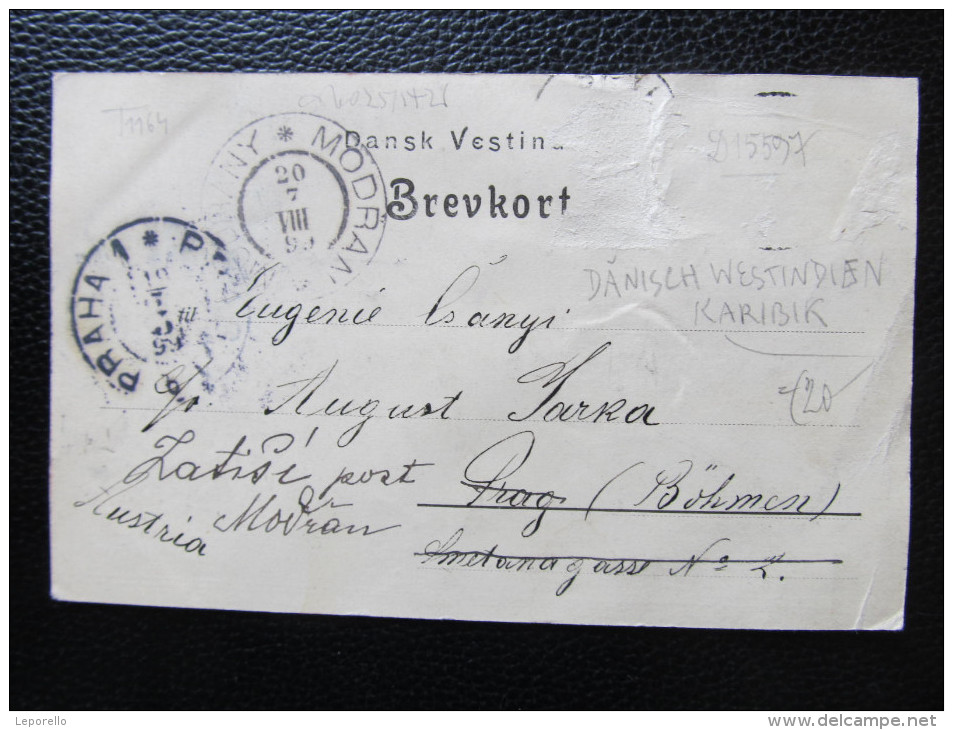 T1164
D15597
Dansk Vestin
Brevkort
MODŘANY * MODRAN
20
7
VIII
99
PRAHA 1 * P
DÄNISCH WESTINDIEN
KARIBIK
20
Eugenie Csányi
c/o August Jarka
Zatiší post Prag (Böhmen)
Austria Modřan
Smetanagasse No 2.
Leporello
www.delcampe.net